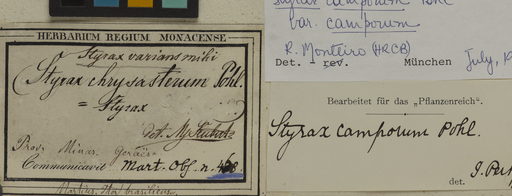 HERBARIUM REGIUM MONACENSE.
Styrax varians mihi
Styrax chrysasterum Pohl.
= Styrax
det.
Prov. Minar. Geraës
Communicavit Mart. Obs. n.
Styrax camporum Pohl
var. camporum
R. Monteiro (HRCB)
Det. rev. München July,
Bearbeitet für das „Pflanzenreich“.
Styrax camporum Pohl.
det. J. Perk